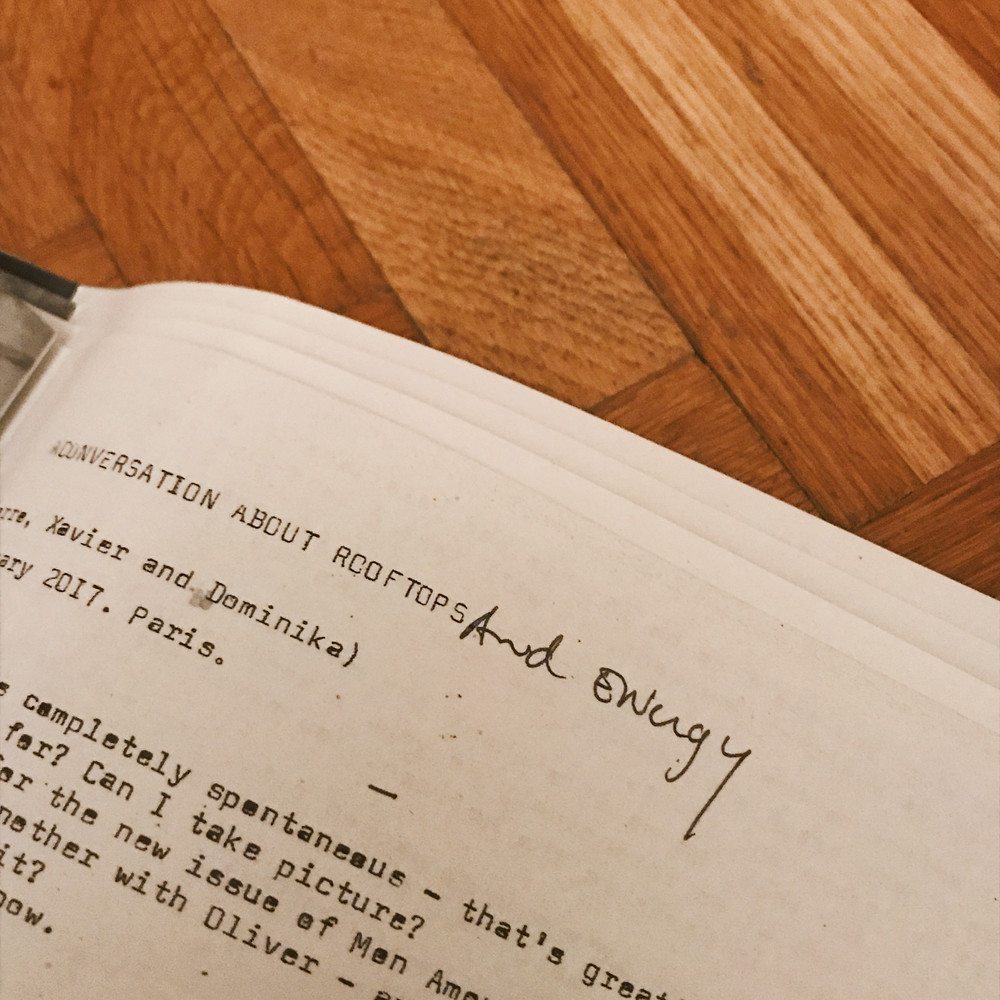 A CONVERSATION ABOUT ROOFTOPS And ENergy
rre, Xavier and Dominika)
ary 20I7. Paris.
—
completely spontaneous – that's great
for? Can I take picture?
the new issue of
another with Oliver –
it?
now.